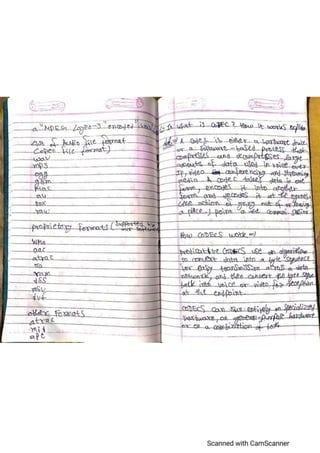 a "MPEG, Layer-3" encoded
file format
(open file format)
wav
mp3
ogg
gsm
flac
au
raw
proprietary formats (supported
wma
aac
atrac
ra
ram
dss
msv
dvf
other formats
atrac
mid
ape
what is CODEC? How it works explain
A codec is either a hardware device
or a software-based process that
compresses and decompresses large
amounts of data used in voice over
IP, video conferencing and streaming
media. A codec takes data in one
form, encodes it into another
form and decodes it at the egress
(the action of going out of or leaving
a place.) point
How CODECS work
CODECS use an algorithm
to convert data into a byte sequence
for easy transmission across a data
network, and then convert the byte
back into voice or video for reception
at the endpoint.
CODECS can run entirely on specialized
hardware, on general-purpose hardware
or on a combination of both
Scanned with CamScanner